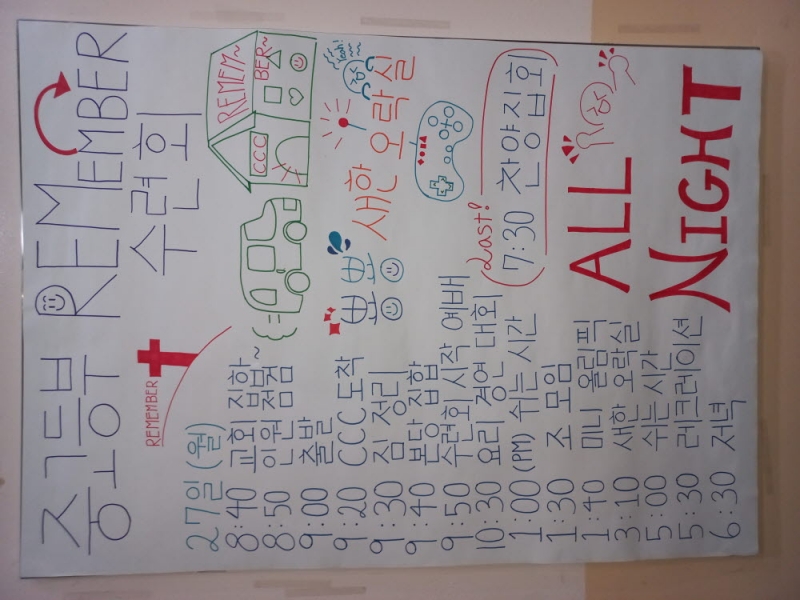 중고등부 REMEMBER
수련회
REMEMBER
REMEM~
BER~
CCC
27일 (월)
8:40 교회 집합~
8:50 인원 점검
9:00 출발
9:20 CCC 도착
9:30 짐 정리
9:40 본당 집합
9:50 수련회 시작 예배
10:30 요리 경연 대회
(PM)
1:00 쉬는 시간
1:30 조 모임
1:40 미니 올림픽
3:10 새한 오락실
5:00 쉬는 시간
5:30 레크레이션
6:30 저녁
뿅 뿅
새한 오락실
Yeah!
Last!
7:30 찬양집회
ALL
NIGHT